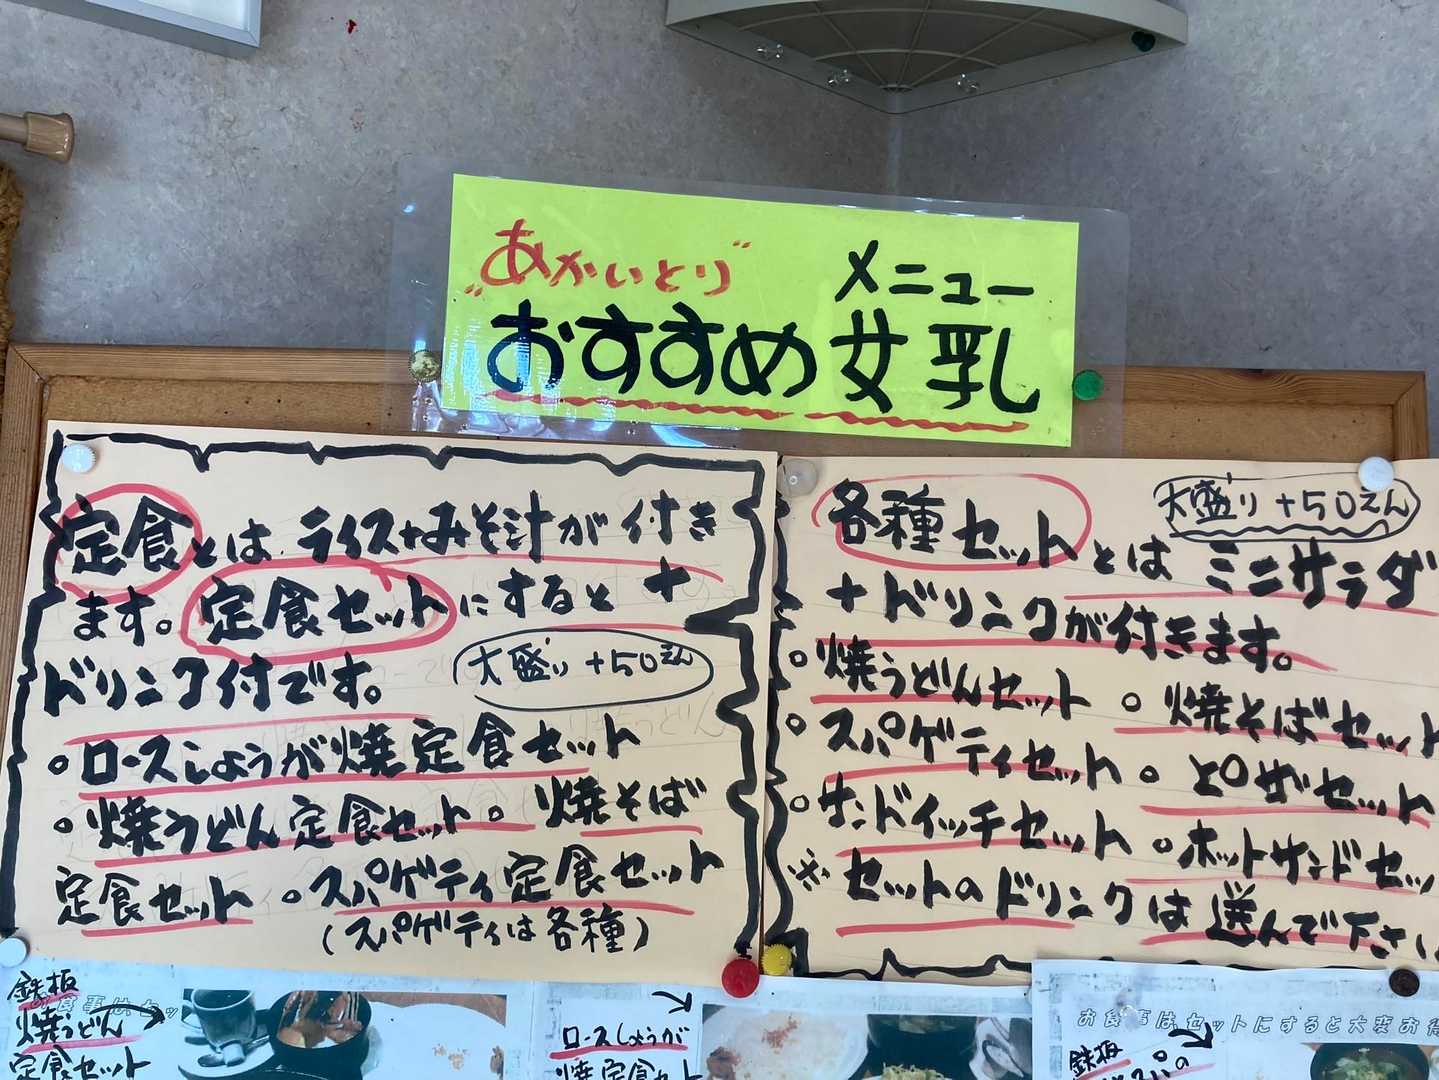 "あかいとり" メニュー
おすすめ女乳
定食とは、ライス+みそ汁が付き
ます。定食セットにすると+
ドリンク付です。 大盛り+50えん
○ロースしょうが焼定食セット
○焼うどん定食セット○焼そば
定食セット ○スパゲティ定食セット
(スパゲティは各種)
各種セットとは ミニサラダ
大盛り+50えん
+ドリンクが付きます。
○焼うどんセット ○焼そばセット
○スパゲティセット ○ピザセット
○サンドイッチセット ○ホットサンドセッ
※セットのドリンクは選んで下さい
鉄板
焼うどん
定食セット
ロースしょうが
焼定食セット
お食事はセットにすると大変お得
鉄板